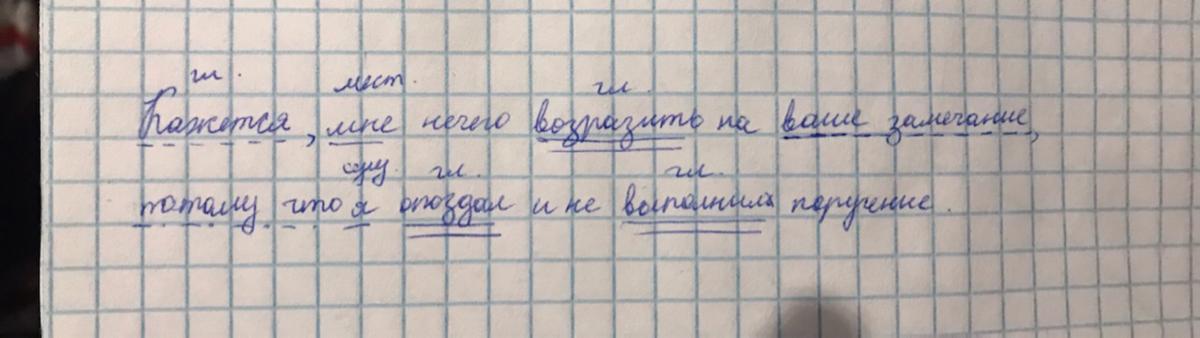 гл. мест. гл.
Кажется, мне нечего возразить на ваше замечание,
сущ. гл. гл.
потому что я опоздал и не выполнила поручение.